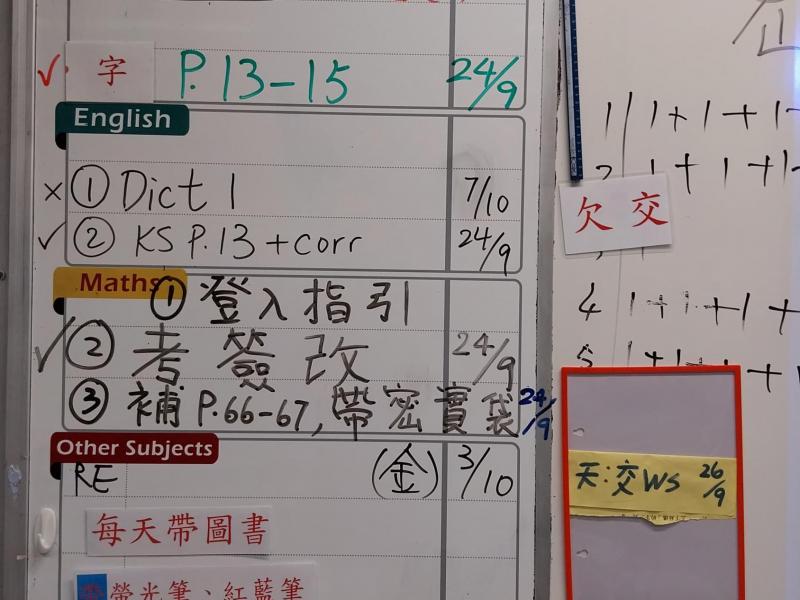 ✓ 字 P.13-15 24/9
English
× ① Dict 1 7/10
✓ ② KS P.13 + corr 24/9
Maths ① 登入指引
✓ ② 考簽改 24/9
③ 補 P.66-67, 帶密實袋 24/9
Other Subjects
RE (金) 3/10
每天帶圖書
螢光筆、紅藍筆
1 1+1+1
欠交
4 1+1+1+
5 1+1
天:交WS 26/9